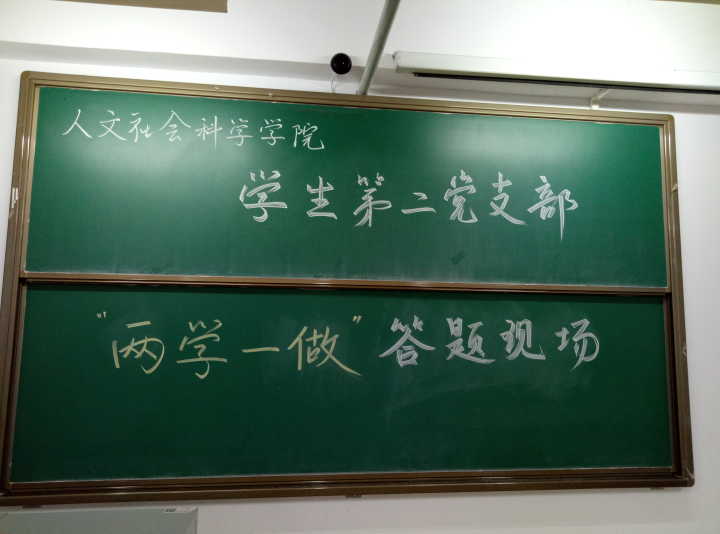 人文社会科学学院
学生第二党支部
"两学一做"答题现场